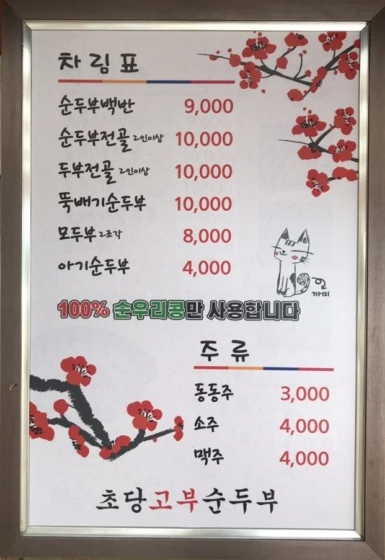 차림표
순두부백반 9,000
순두부전골 2인이상 10,000
두부전골 2인이상 10,000
뚝배기순두부 10,000
모두부 2조각 8,000
아기순두부 4,000
100% 순우리콩만 사용합니다
주류
동동주 3,000
소주 4,000
맥주 4,000
초당고부순두부